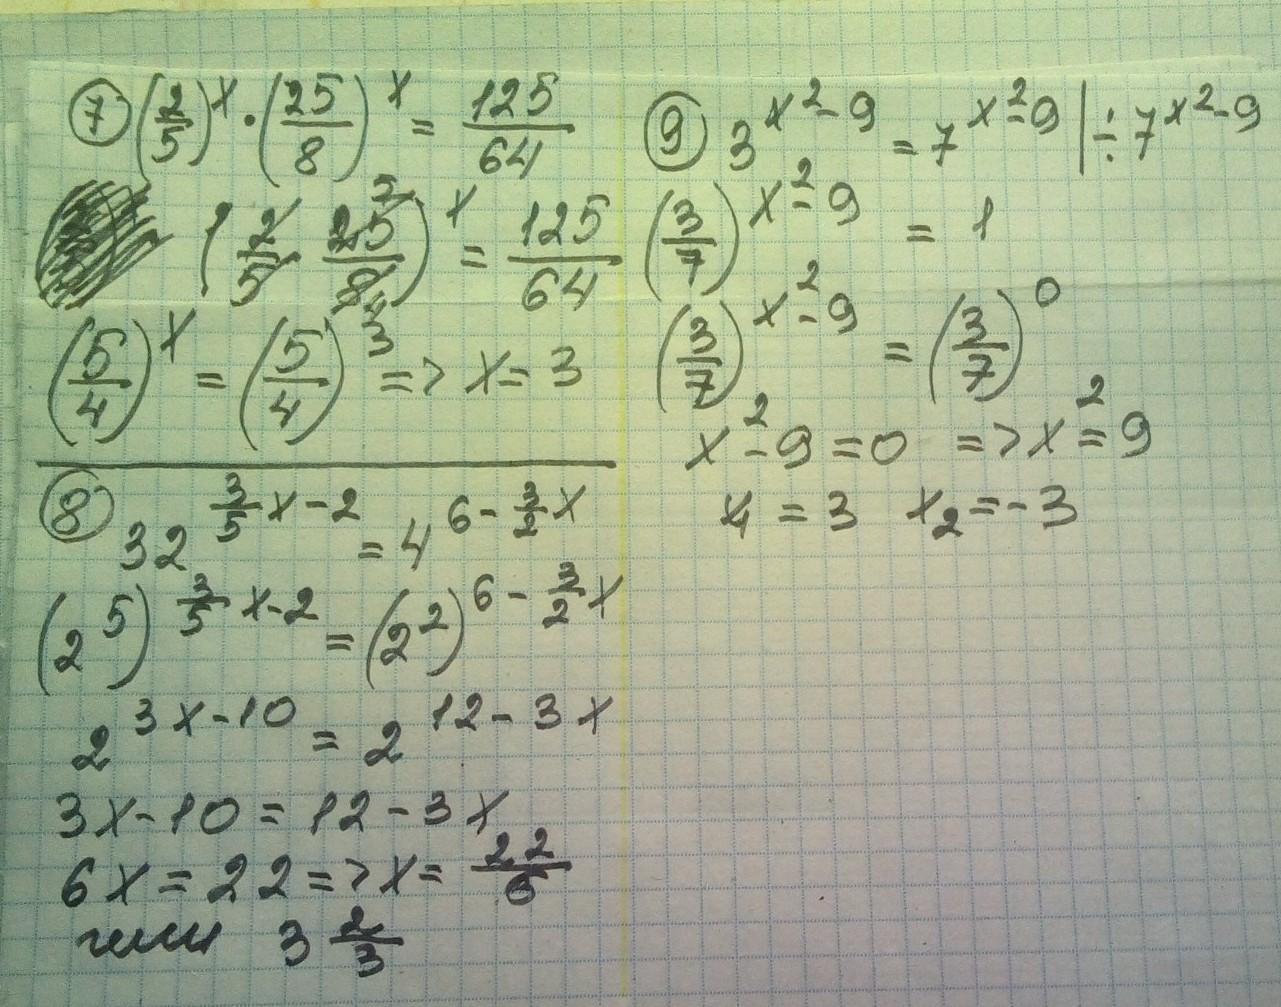 ⑦ (2/5)^x · (25/8)^x = 125/64
(2/5 25/8)^x = 125/64
(5/4)^x = (5/4)^3 => x = 3
⑧ 32^(3/5 x - 2) = 4^(6 - 3/2 x)
(2^5)^(3/5 x - 2) = (2^2)^(6 - 3/2 x)
2^(3x - 10) = 2^(12 - 3x)
3x - 10 = 12 - 3x
6x = 22 => x = 22/6
или 3 2/3
⑨ 3^(x^2 - 9) = 7^(x^2 - 9) | ÷ 7^(x^2 - 9)
(3/7)^(x^2 - 9) = 1
(3/7)^(x^2 - 9) = (3/7)^0
x^2 - 9 = 0 => x^2 = 9
x₁ = 3 x₂ = -3